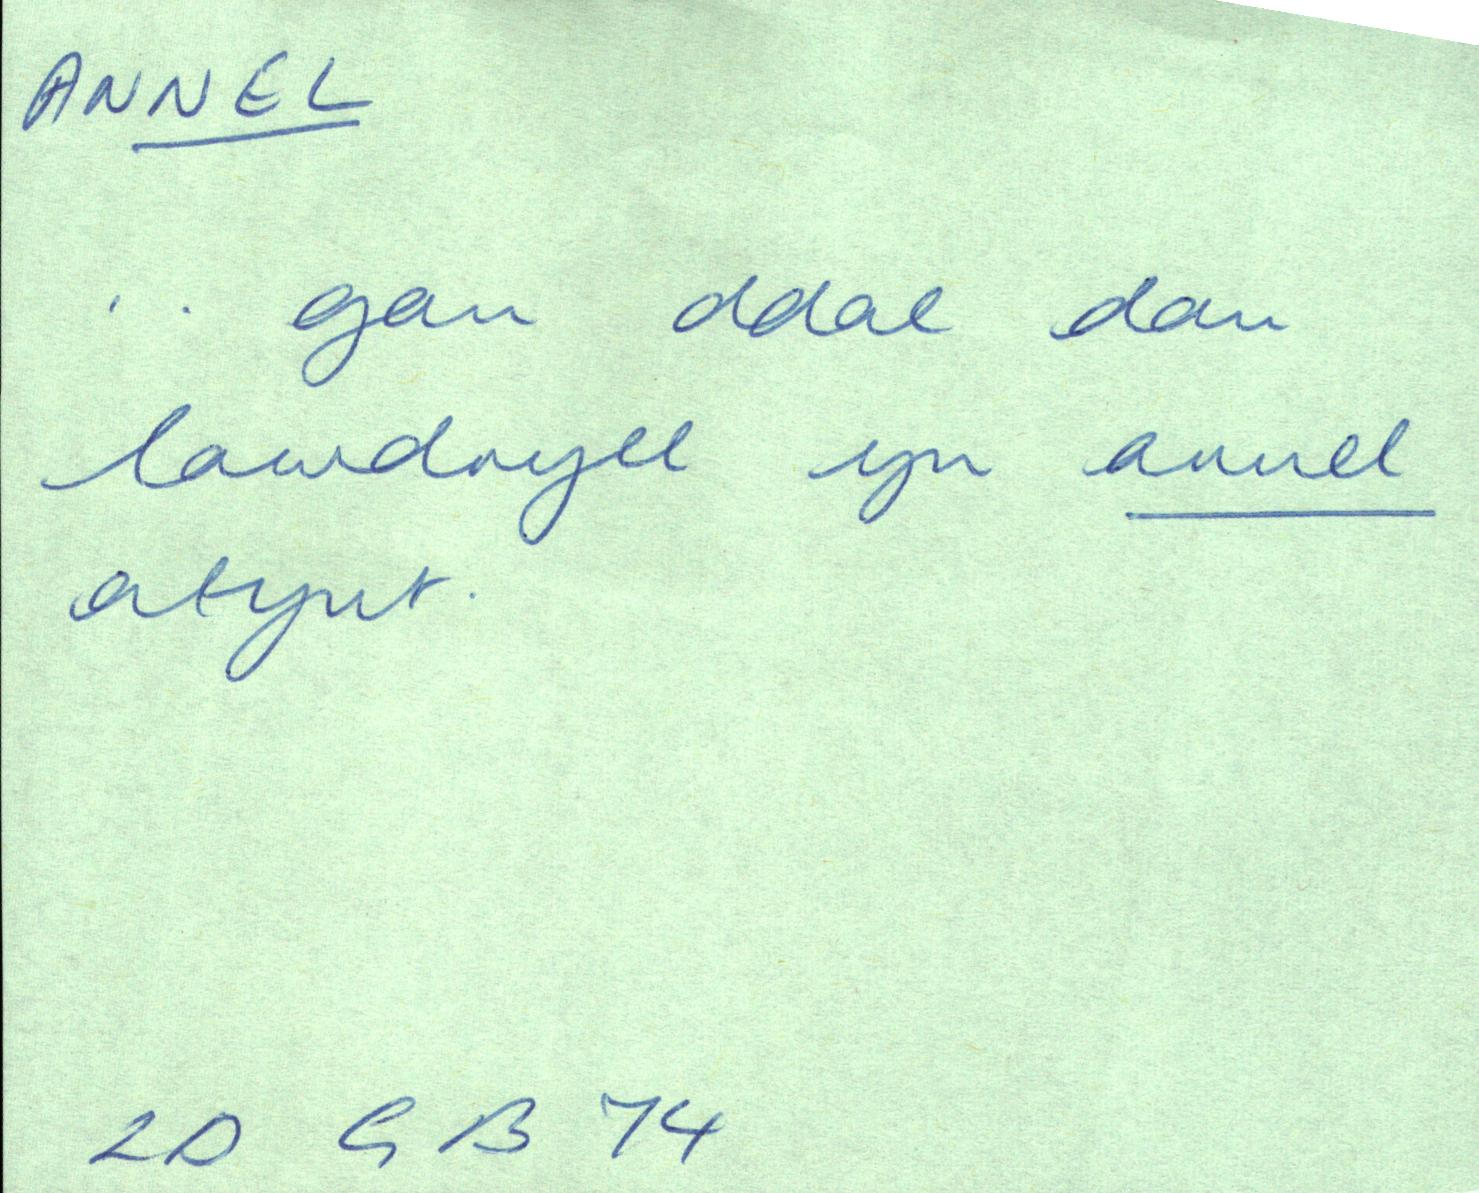 ANNEL
.. gan ddal dau
lawdryll yn annel
atynt.
LD GB 74